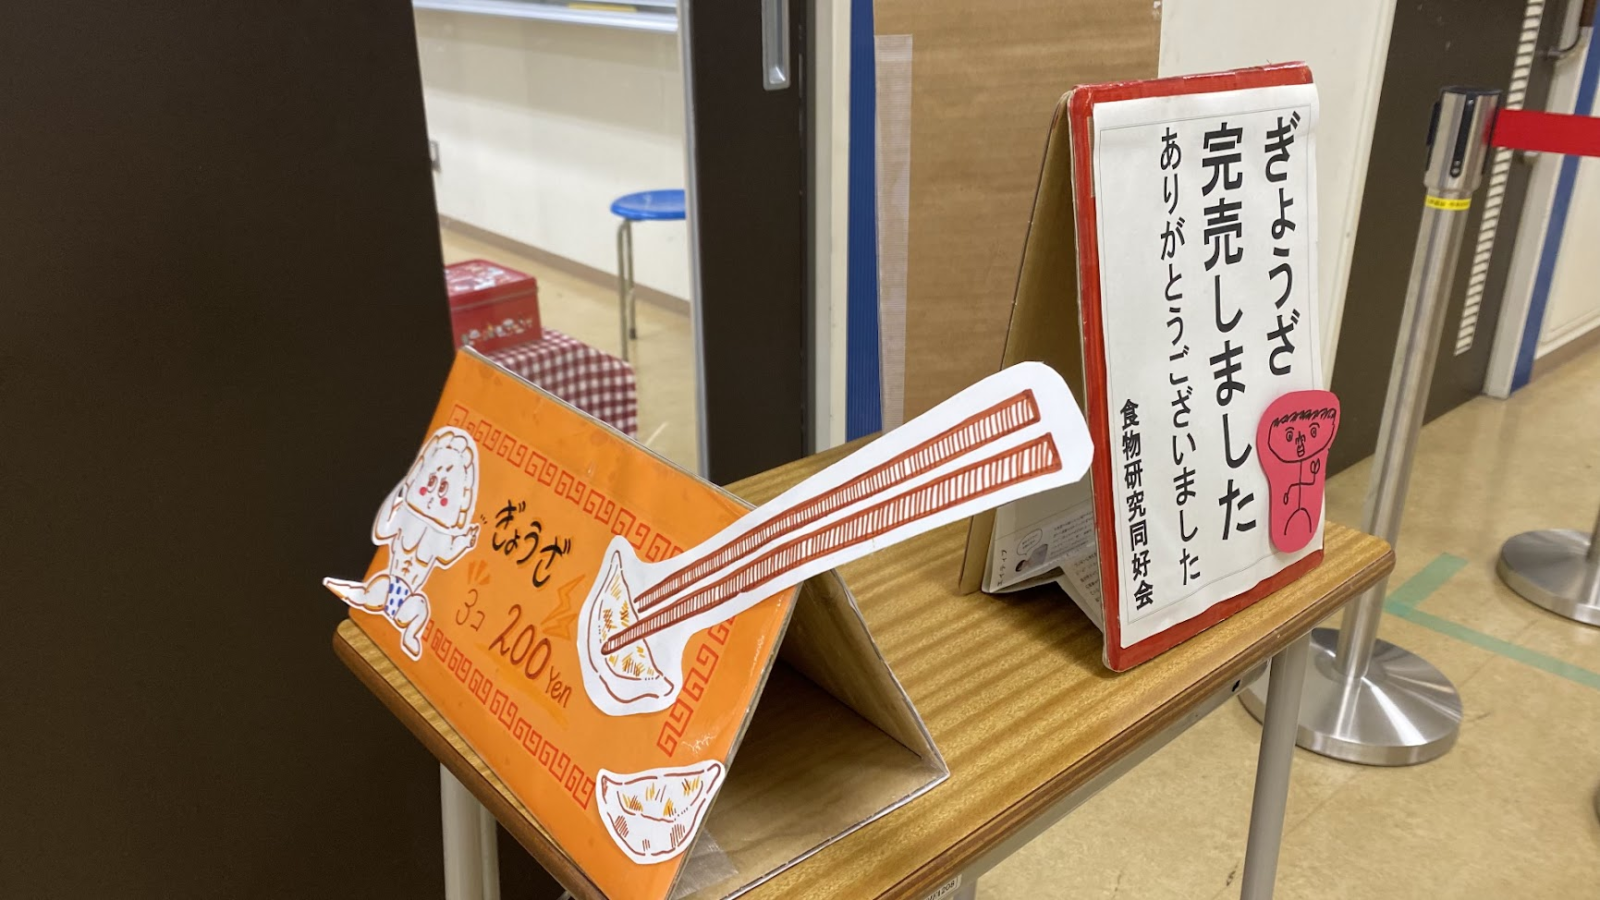 ぎょうざ
3コ
200 Yen
ぎょうざ
完売しました
ありがとうございました
食物研究同好会